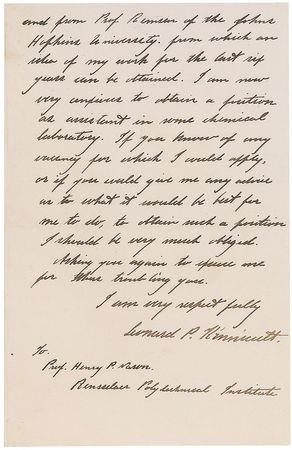 and from Prof Remsen of the Johns
Hopkins University, from which an
idea of my work for the last six
years can be obtained. I am now
very anxious to obtain a position
as assistant in some chemical
laboratory. If you know of any
vacancy for which I could apply,
or if you would give me any advice
as to what it would be best for
me to do, to obtain such a position
I should be very much obliged.
Asking you again to excuse me
for thus troubling you.
I am very respectfully
Leonard P. Kinnicutt.
To.
Prof. Henry B. Nason.
Rensselaer Polytechnical Institute